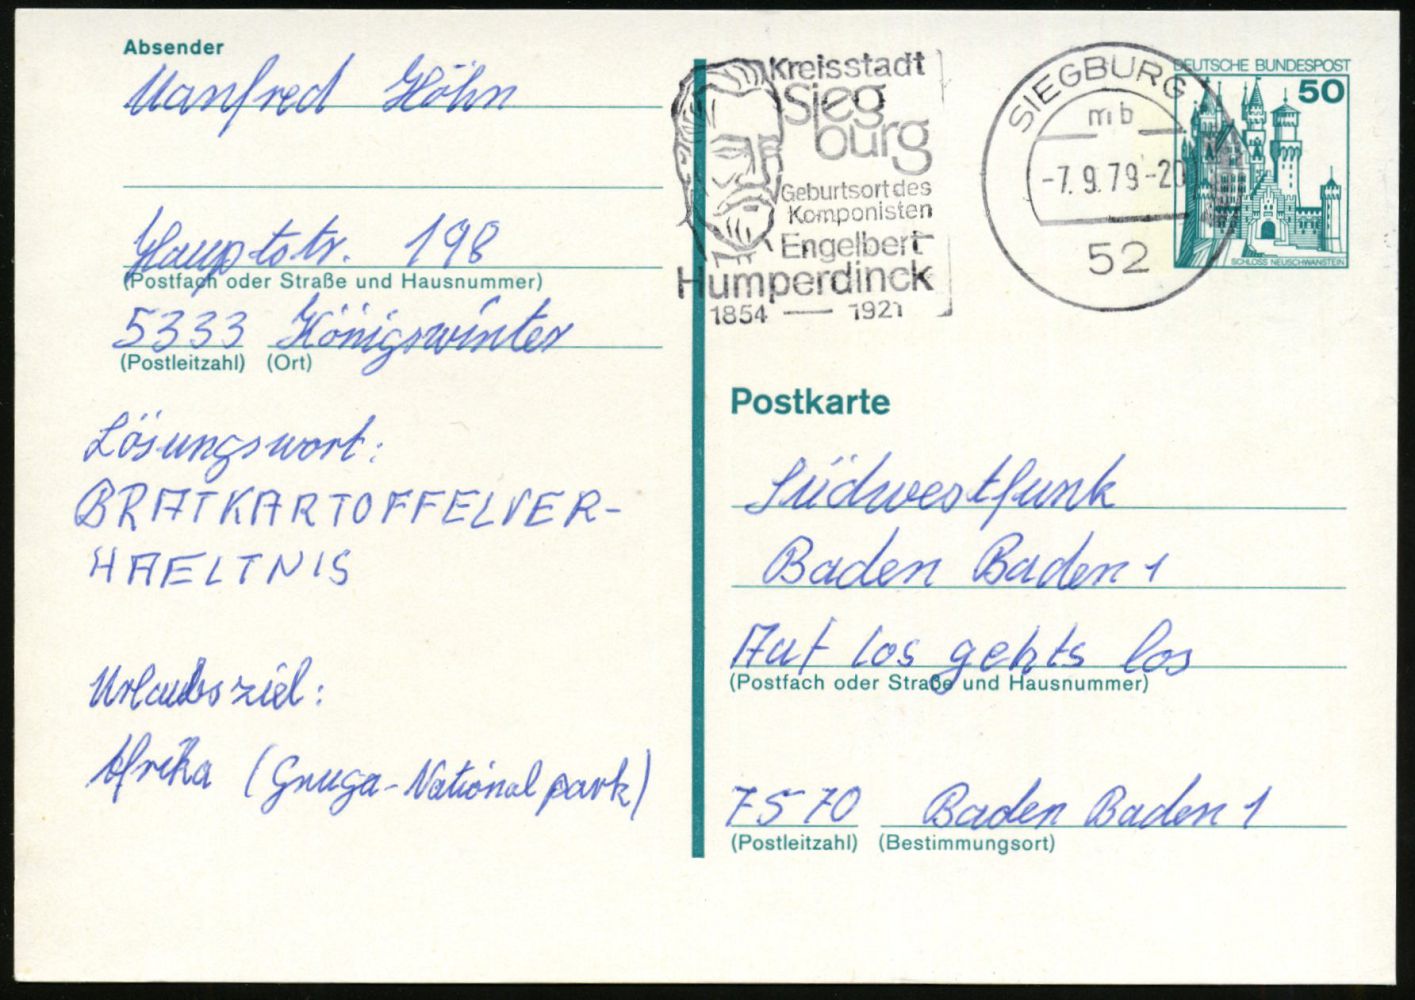 Absender
Manfred Höhn
Hauptstr. 198
(Postfach oder Straße und Hausnummer)
5333 Königswinter
(Postleitzahl) (Ort)
Lösungswort:
BRATKARTOFFELVER-
HAELTNIS
Urlaubsziel:
Afrika (Gruga-Nationalpark)
Kreisstadt
Sieg
burg
Geburtsort des
Komponisten
Engelbert
Humperdinck
1854 — 1921
SIEGBURG
mb
-7.9.79-20
52
DEUTSCHE BUNDESPOST
50
SCHLOSS NEUSCHWANSTEIN
Postkarte
Südwestfunk
Baden Baden 1
Auf los gehts los
(Postfach oder Straße und Hausnummer)
7570 Baden Baden 1
(Postleitzahl) (Bestimmungsort)